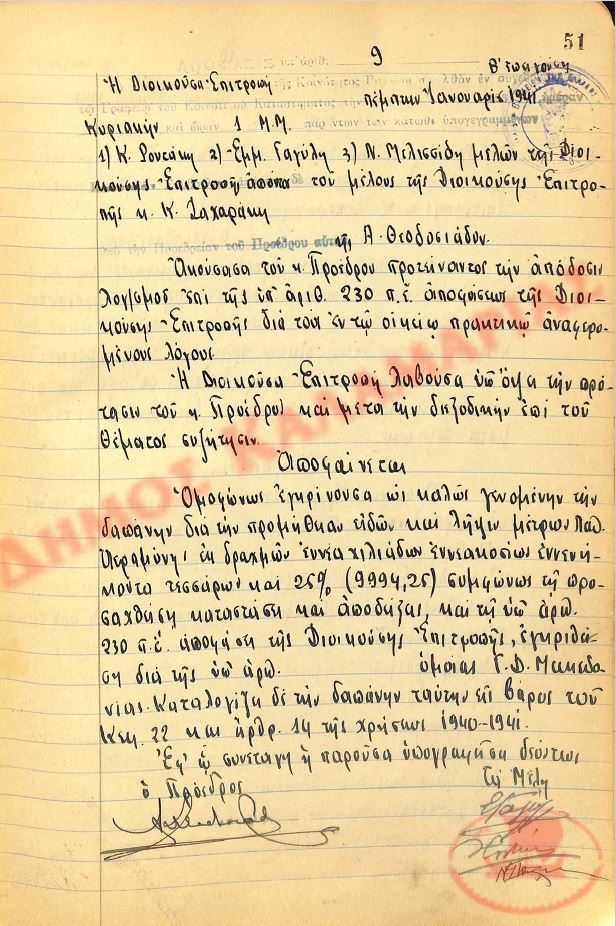 51
ΑΠΟΦΑΣΙΣ ὑπ' ἀριθ. 9
Ἡ Διοικοῦσα Ἐπιτροπή
πέμπτην Ἰανουαρίου 1941
Κυριακήν καὶ ὥραν 1 Μ.Μ. παρόντων τῶν κάτωθι ὑπογεγραμμένων
1) Κ. Ρουτάκη 2) Ἐμμ. Γαγύλη 3) Ν. Μελισσίδη μελῶν τῆς Διοι-
κούσης Ἐπιτροπῆς τοῦ μέλους τῆς Διοικούσης Ἐπιτρο-
πῆς κ. Κ. Ζαχαράκη
ὑπὸ τὴν Προεδρείαν τοῦ Προέδρου αὐτῆς Α. Θεοδοσιάδου.
Ἀκούσασα τοῦ κ. Προέδρου προτείναντος τὴν ἀπόδοσιν
λογ/σμοῦ ἐπὶ τῆς ὑπ' ἀριθ. 230 π.ἔ. ἀποφάσεως τῆς Διοι-
κούσης Ἐπιτροπῆς διὰ τοὺς ἐν τῷ οἰκείῳ πρακτικῷ ἀναφερο-
μένους λόγους
Ἡ Διοικοῦσα Ἐπιτροπή λαβοῦσα ὑπ' ὄψει τὴν πρό-
τασιν τοῦ κ. Προέδρου καὶ μετὰ τὴν διεξοδικήν ἐπὶ τοῦ
θέματος συζήτησιν.
Ἀποφαίνεται
Ὁμοφώνως ἐγκρίνουσα ὡς καλῶς γενομένην τὴν
δαπάνην διὰ τὴν προμήθειαν εἰδῶν καὶ λῆψιν μέτρων Παθ.
Ἀεραμύνης ἐκ δραχμῶν ἐννέα χιλιάδων ἐννεακοσίων ἐννενή-
κοντα τεσσάρων καὶ 25% (9994,25) συμφώνως τῇ προ-
σαχθείσῃ καταστάσει καὶ ἀποδείξει, καὶ τῇ ὑπ' ἀριθ.
230 π.ἔ. ἀποφάσει τῆς Διοικούσης Ἐπιτροπῆς, ἐγκριθεί-
σῃ διὰ τῆς ὑπ' ἀριθ. ὁμοίας Γ.Δ. Μακεδο-
νίας. Καταλογίζει δὲ τὴν δαπάνην ταύτην εἰς βάρος τοῦ
Κεφ. 22 καὶ ἄρθρ. 14 τῆς χρήσεως 1940-1941.
Ἐφ' ᾧ συνετάγη ἡ παροῦσα ὑπογραφεῖσα δεόντως
ὁ Πρόεδρος Τὰ Μέλη
ΔΗΜΟΣ ΚΑΛΑΜΑΡΙΑΣ